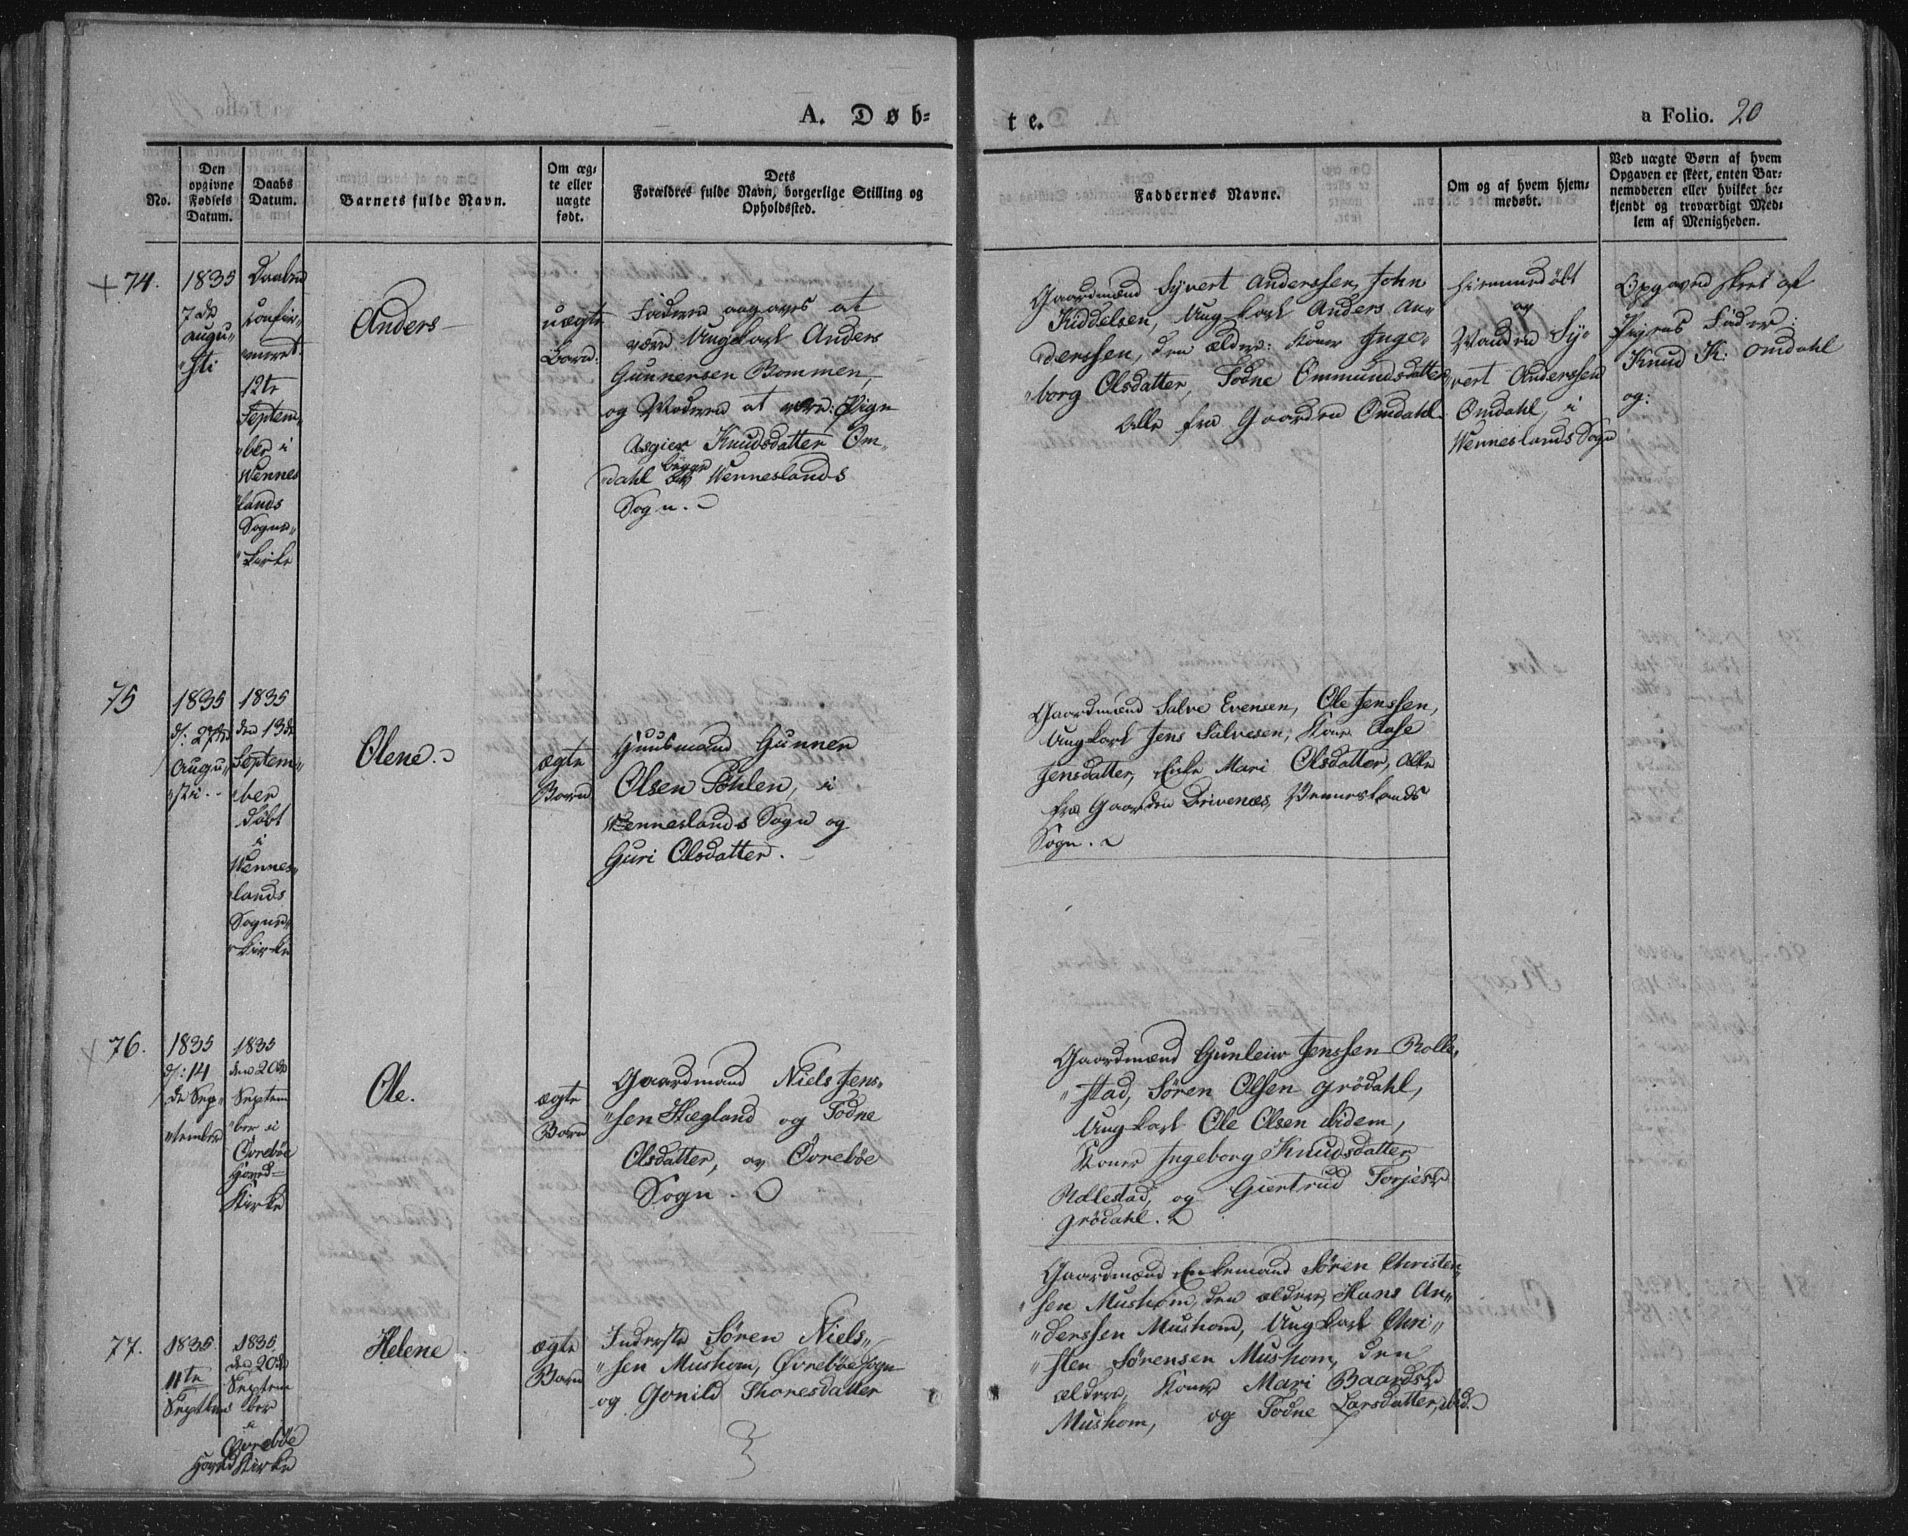 A. Døb-
te.
a Folio. 20
No.
Den
opgivne
Fødsels
Datum.
Daabs
Datum.
Barnets fulde Navn.
Om æg-
te eller
uægte
født.
Dets
Forældres fulde Navn, borgerlige Stilling og
Opholdssted.
Faddernes Navne.
Om og af hvem hjem-
medøbt.
Ved uægte Børn af hvem
Opgaven er skeet, enten Bar-
nemoderen eller hvilket be-
kjendt og troværdigt Med-
lem af Menigheden.
+ 74.
1835
7de
Augu-
sti
Daaben
confir-
meret
12te
Septem-
ber i
Wennes
lands
Sogne-
kirke
Anders
uægte
Barn:
Faderen at
være Ungkarl Anders
Gunnersen Bommen,
og Moderen at være: Pige
Asgier Knudsdatter Om-
dahl Wenneslands
Sogn.
Gaardmænd Syvert Anderssen, John
Kiddelsen, Ungkarl Anders An-
derssen, den ældre: Koner Inge-
borg Olsdatter, Todne Ommundsdatter
Alle fra Gaarden Omdahl
Hiemmedøbt
og
Manden Sy-
vert Anderssen
Omdahl, i
Wenneslands Sogn
Opgaven skeet af
Pigens Fader:
Knud K: Omdahl
og:
75
1835
d: 27de
Augu-
sti
1835
den 13de
Septem-
ber
døbt
i
Wennes-
lands
Sogne-
kirke
Olene.
ægte
Barn
Huusmand Gunner
Olsen Pøhlen, i
Wenneslands Sogn og
Guri Olsdatter.
Gaardmænd Salve Evensen, Ole Jenssen,
Ungkarl Jens Salvesen, Kone Aase
Jensdatter, Enke Mari Olsdatter, Alle
fra Gaarden Drivenæs, Venneslands
Sogn.
+ 76.
1835
d: 14
de Sep-
tember
1835
den 20de
Septem
ber i
Øvrebøe
Hoved-
Kirke
Ole.
ægte
Barn
Gaardmand Niels Jens-
sen Hægland og Todne
Olsdatter, av Øvrebøe
Sogn.
Gaardmænd Gunleiw Jenssen Rolle-
stad, Søren Olsen Grödahl,
Ungkarl Ole Olsen ibidem,
Koner Ingeborg Knudsdatter
Rollestad, og Giertrud Torjesdr
Grödahl.
77.
1835
11te
Septbr
1835
den 20de
Septem
ber
i
Øvrebøe
Hoved Kirke
Helene
ægte
Barn
Inderste Søren Niels-
sen Mushom, Øvrebøe Sogn
og Gonild Thoresdatter
Gaardmænd Enkemand Søren Christen-
sen Mushom, den ældre, Hans An-
derssen Mushom, Ungkarl Chri-
sten Sørensen Mushom, den
ældre, Koner Mari Baardsd
Mushom, og Todne Larsdatter, ibid.